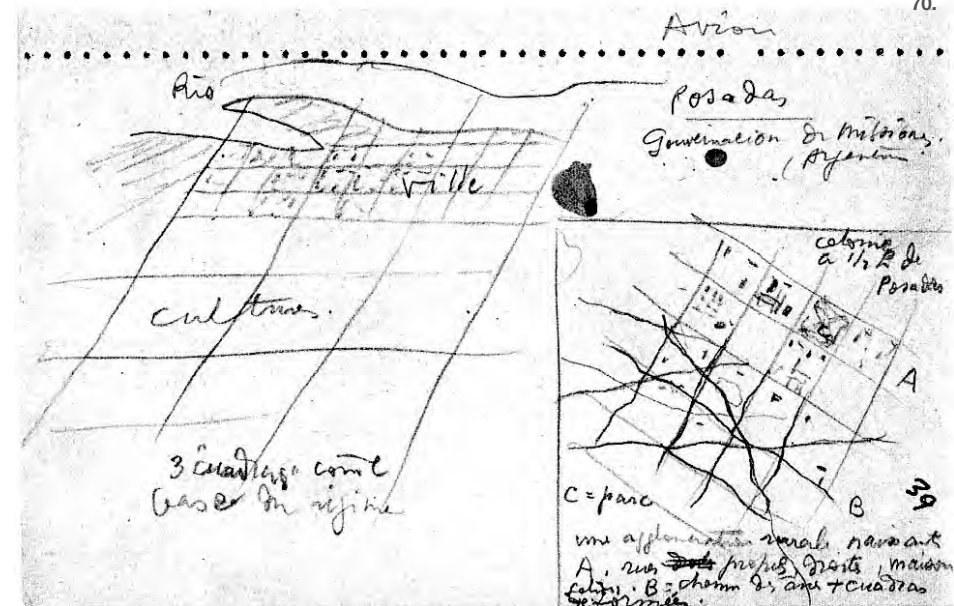 70.
Avion
Rio
Posadas
Gouvernacion de Missiones.
(Argentine
Ville
cultures.
3 cuadras comme
base du régime
colonie
a 1/2 h de
Posadas
A
B
C = parc
39
une agglomération rurale naissante
A, rues propres, droite, maison
B = chemin des ânes + cuadras